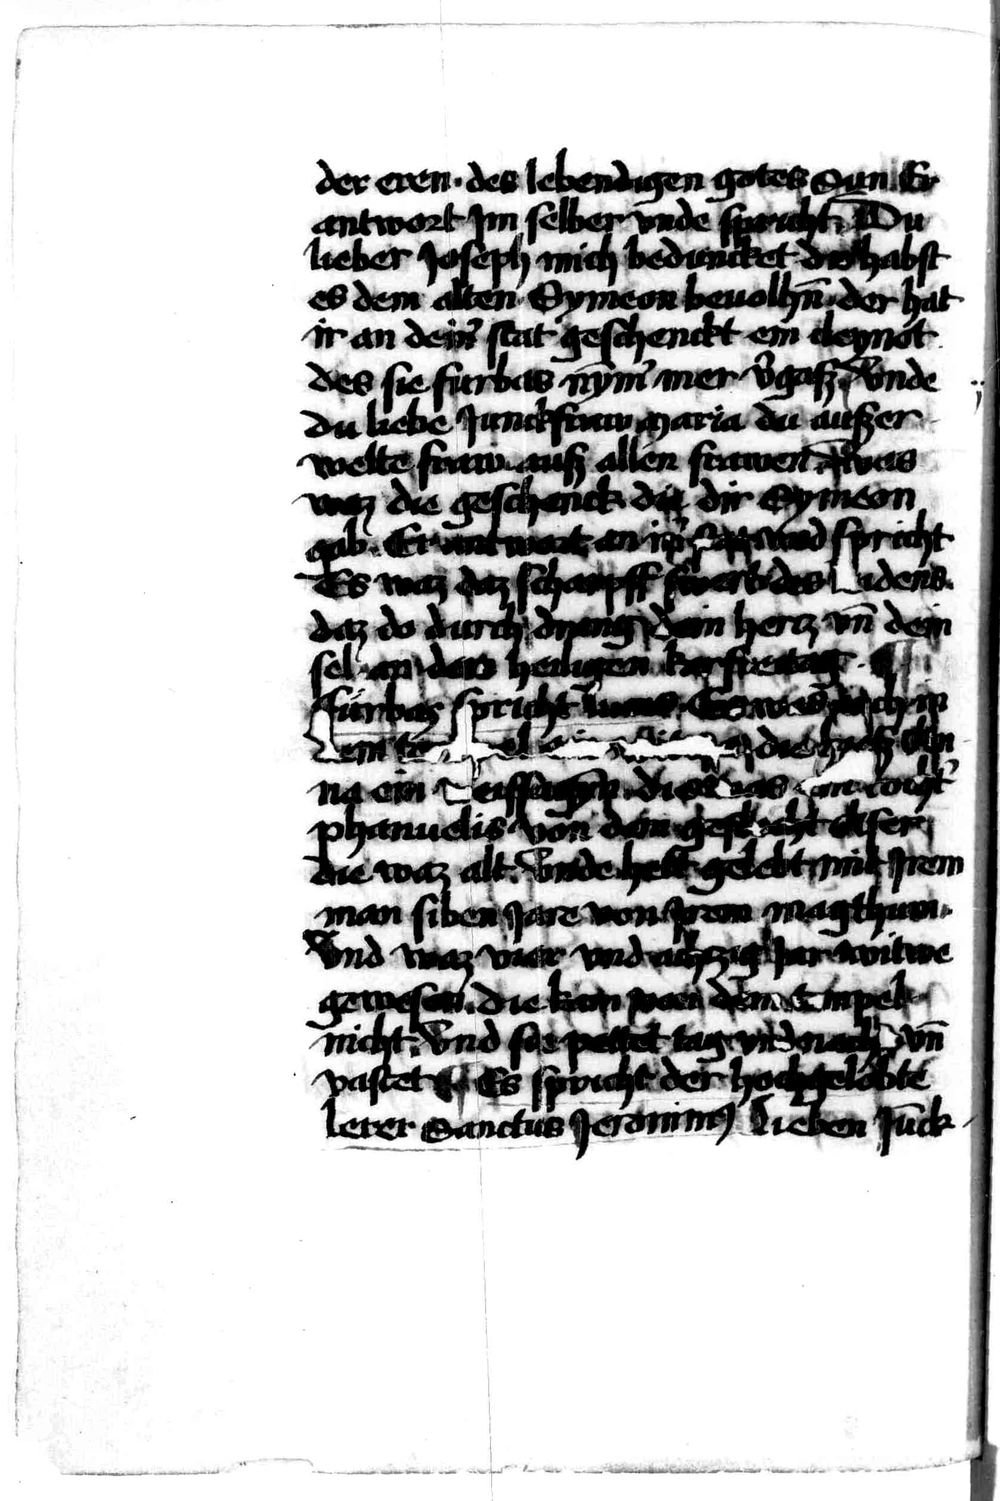 der eren · des lebendigen gotes Sun Er
antwort Jm selber vnde spricht. Du
lieber Joseph mich beduncket du habst
es dem alten Symeon beuolhn̄ · der hat
ir an deinr̄ stat geschenckt ein cleynot
des sie furbas nym̄ mer v̄gasz. Vnde
du liebe Junckfraw maria du auszer
welte fraw ausz allen frawen Was
waz die geschenck die dir Symeon
gab. Er antwort an irr̄ stat vnd spricht
Es waz daz scharpff swert des Leidens.
daz do durch drang dein hertz vn̄ dein
sel an dem heiligen karfreitag ·
Furbaz spricht Er was auch in
dem die hyesz An
na ein weissagīn. die was ein tocht̄
phanuelis · von dem geslecht Aser
die waz alt. Vnde hett gelebt mit Jrem
man siben Jare von Jrem magthum ·
Vnd waz vier vnd achzig Jar witwe
gewesen. die kam von dem tempel
nicht. Vnd sie pettet tag vnd nacht vn̄
vastet Es spricht der hochgelobte
lerer Sanctus Jeronimus Lieben Jūck